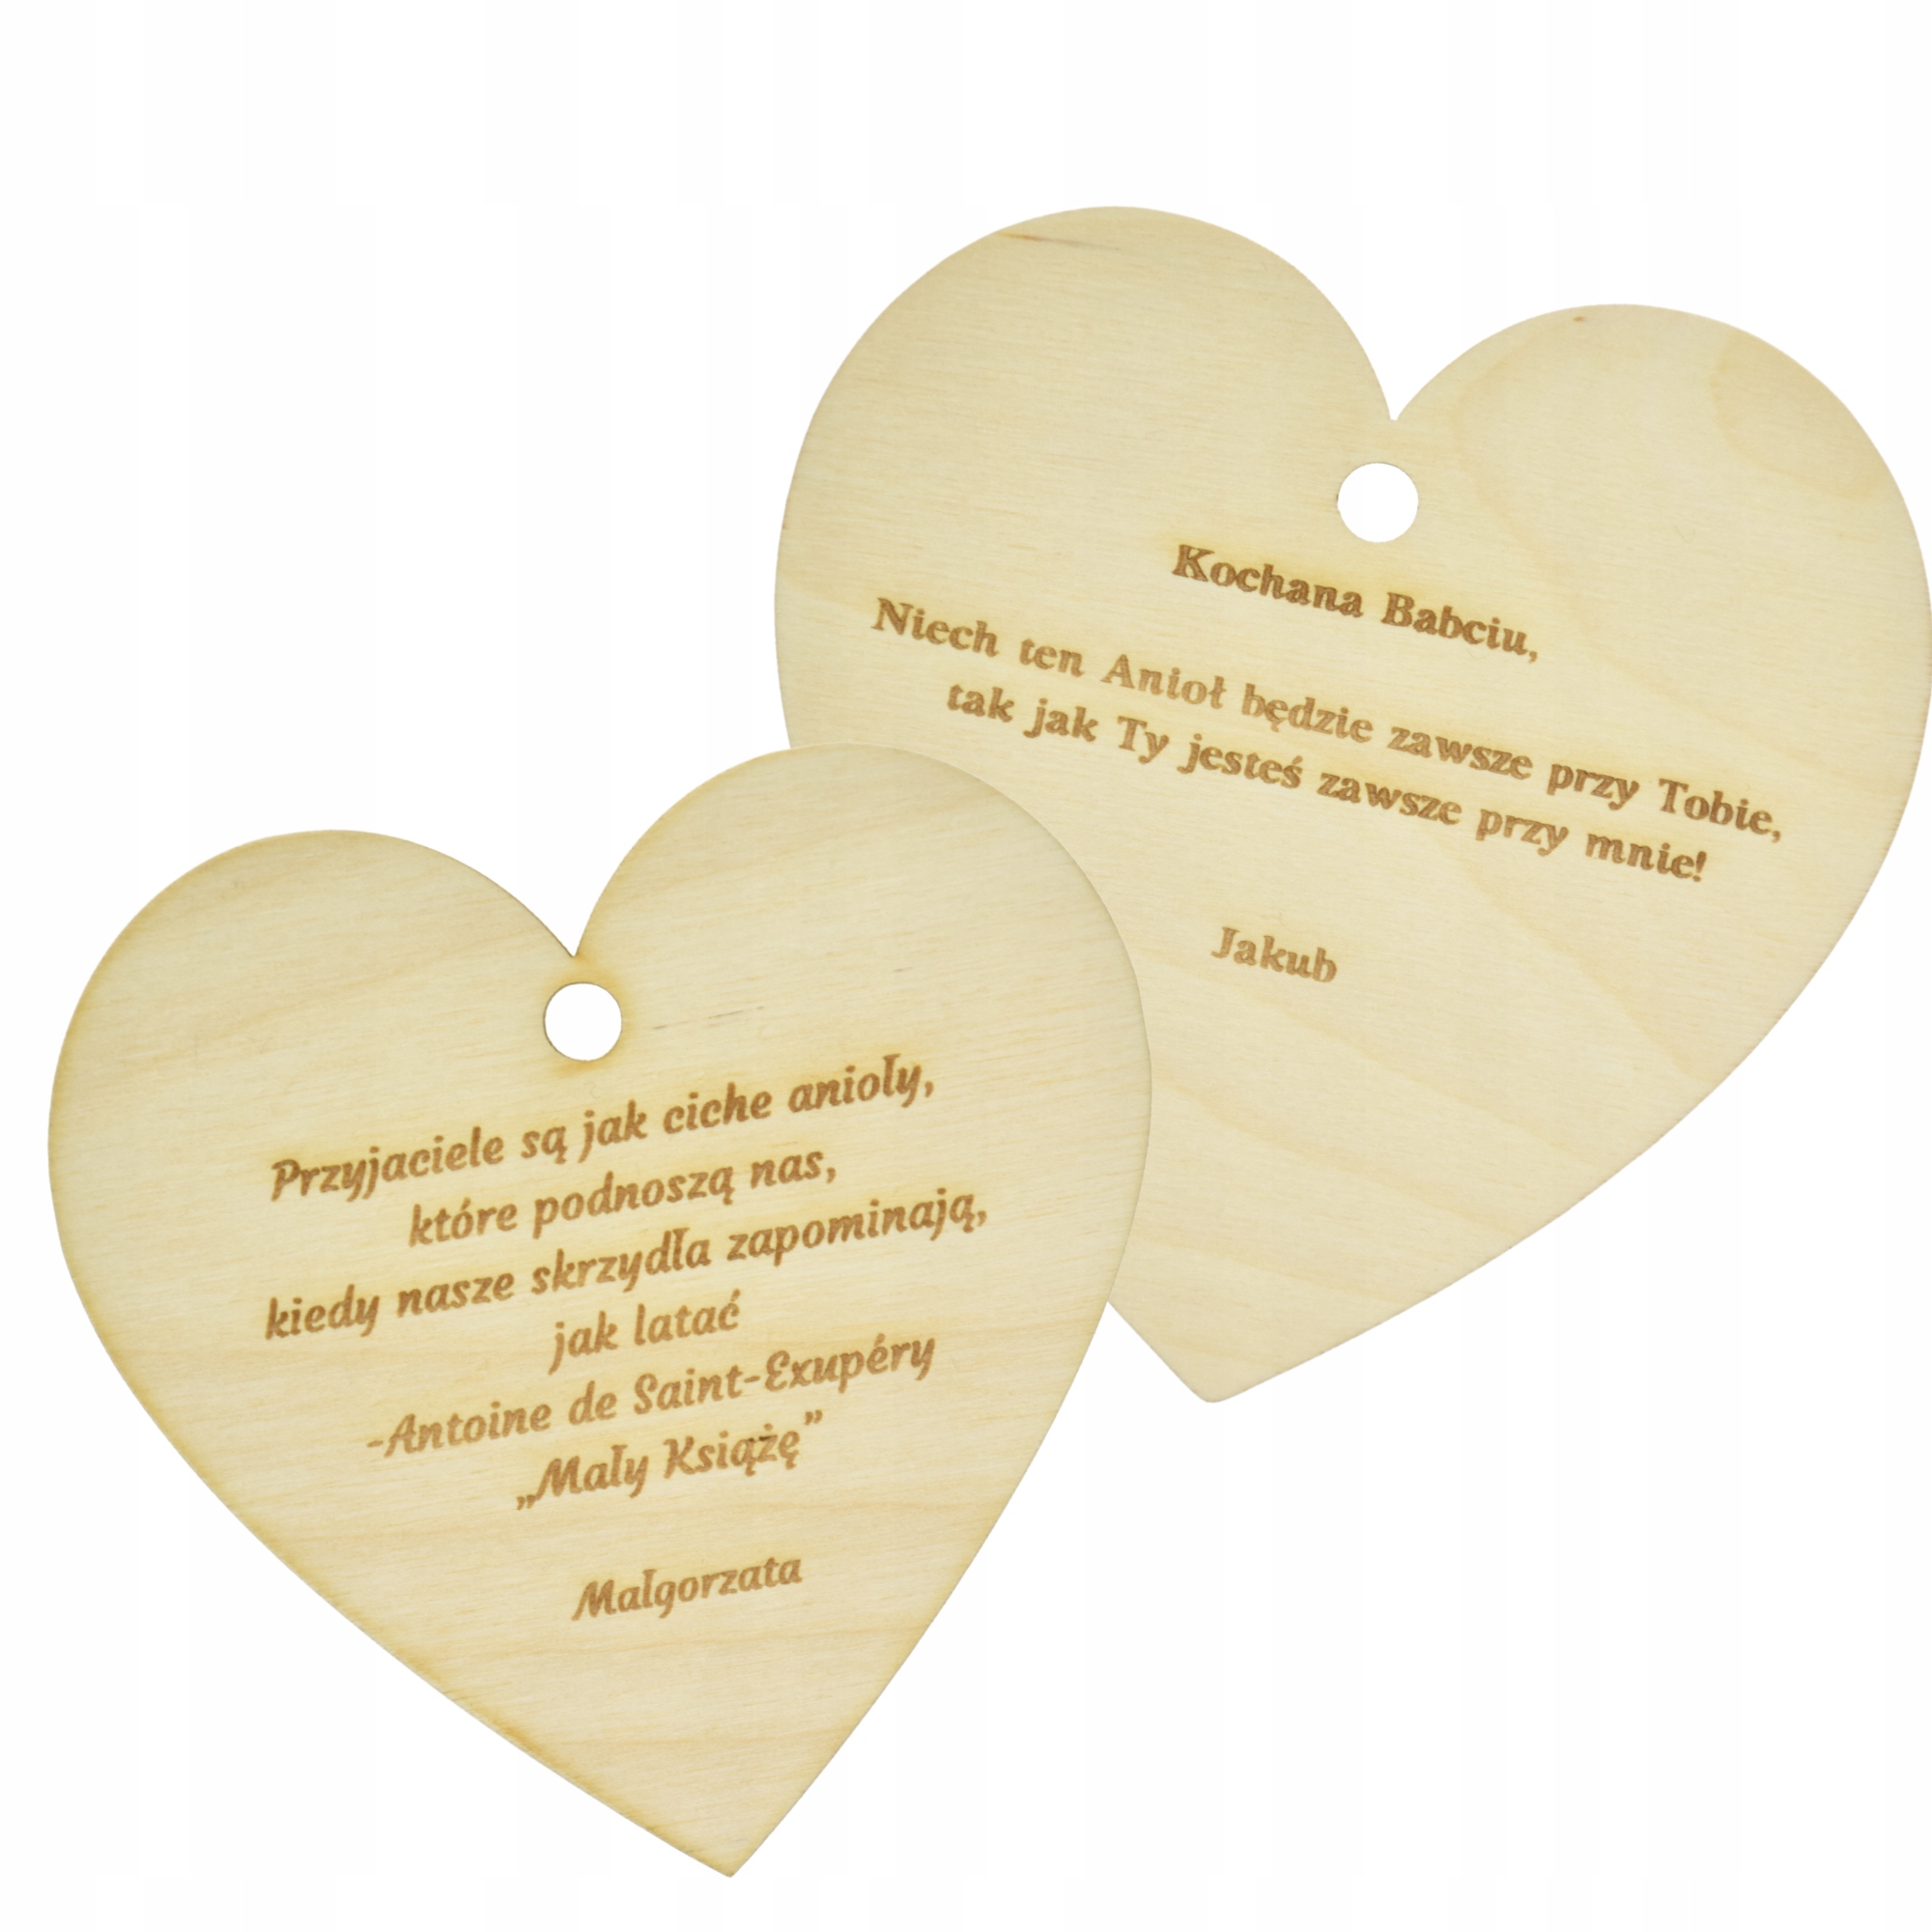 Kochana Babciu,
Niech ten Anioł będzie zawsze przy Tobie,
tak jak Ty jesteś zawsze przy mnie!
Jakub
Przyjaciele są jak ciche anioły,
które podnoszą nas,
kiedy nasze skrzydła zapominają,
jak latać
-Antoine de Saint-Exupéry
„Mały Książę”
Małgorzata